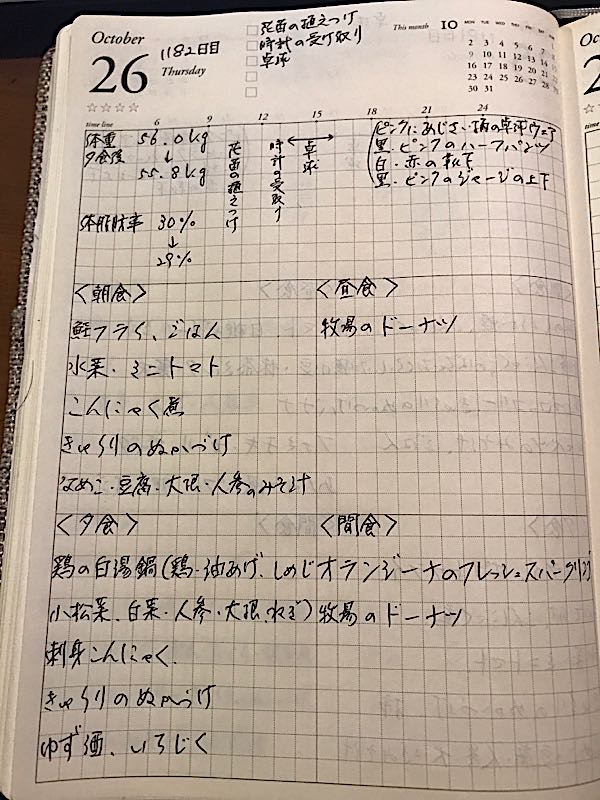 October
26
1182日目
Thursday
花苗の植えつけ
時計の受け取り
卓球
This month 10
MON TUE WED THU FRI SAT SUN
2 3 4 5 6 7 8
9 10 11 12 13 14 15
16 17 18 19 20 21 22
23 24 25 26 27 28 29
30 31
☆☆☆☆
time line 6 9 12 15 18 21 24
体重 56.0kg
夕食後 ↓
55.8kg
体脂肪率 30%
↓
29%
花苗の植えつけ
時計の受取り
卓球
ピンクにあじさい柄の卓球ウェア
黒・ピンクのハーフパンツ
白・赤の靴下
黒・ピンクのジャージの上下
<朝食>
鮭フライ、ごはん
水菜・ミニトマト
こんにゃく煮
きゅうりのぬかづけ
なめこ・豆腐・大根・人参のみそ汁
<昼食>
牧場のドーナツ
<夕食>
鶏の白湯鍋(鶏・油あげ、しめじ
小松菜、白菜・人参・大根、ねぎ)
刺身こんにゃく
きゅうりのぬかづけ
ゆず酒、いろじく
<間食>
オランジーナのフレッシュスパークリング
牧場のドーナツ